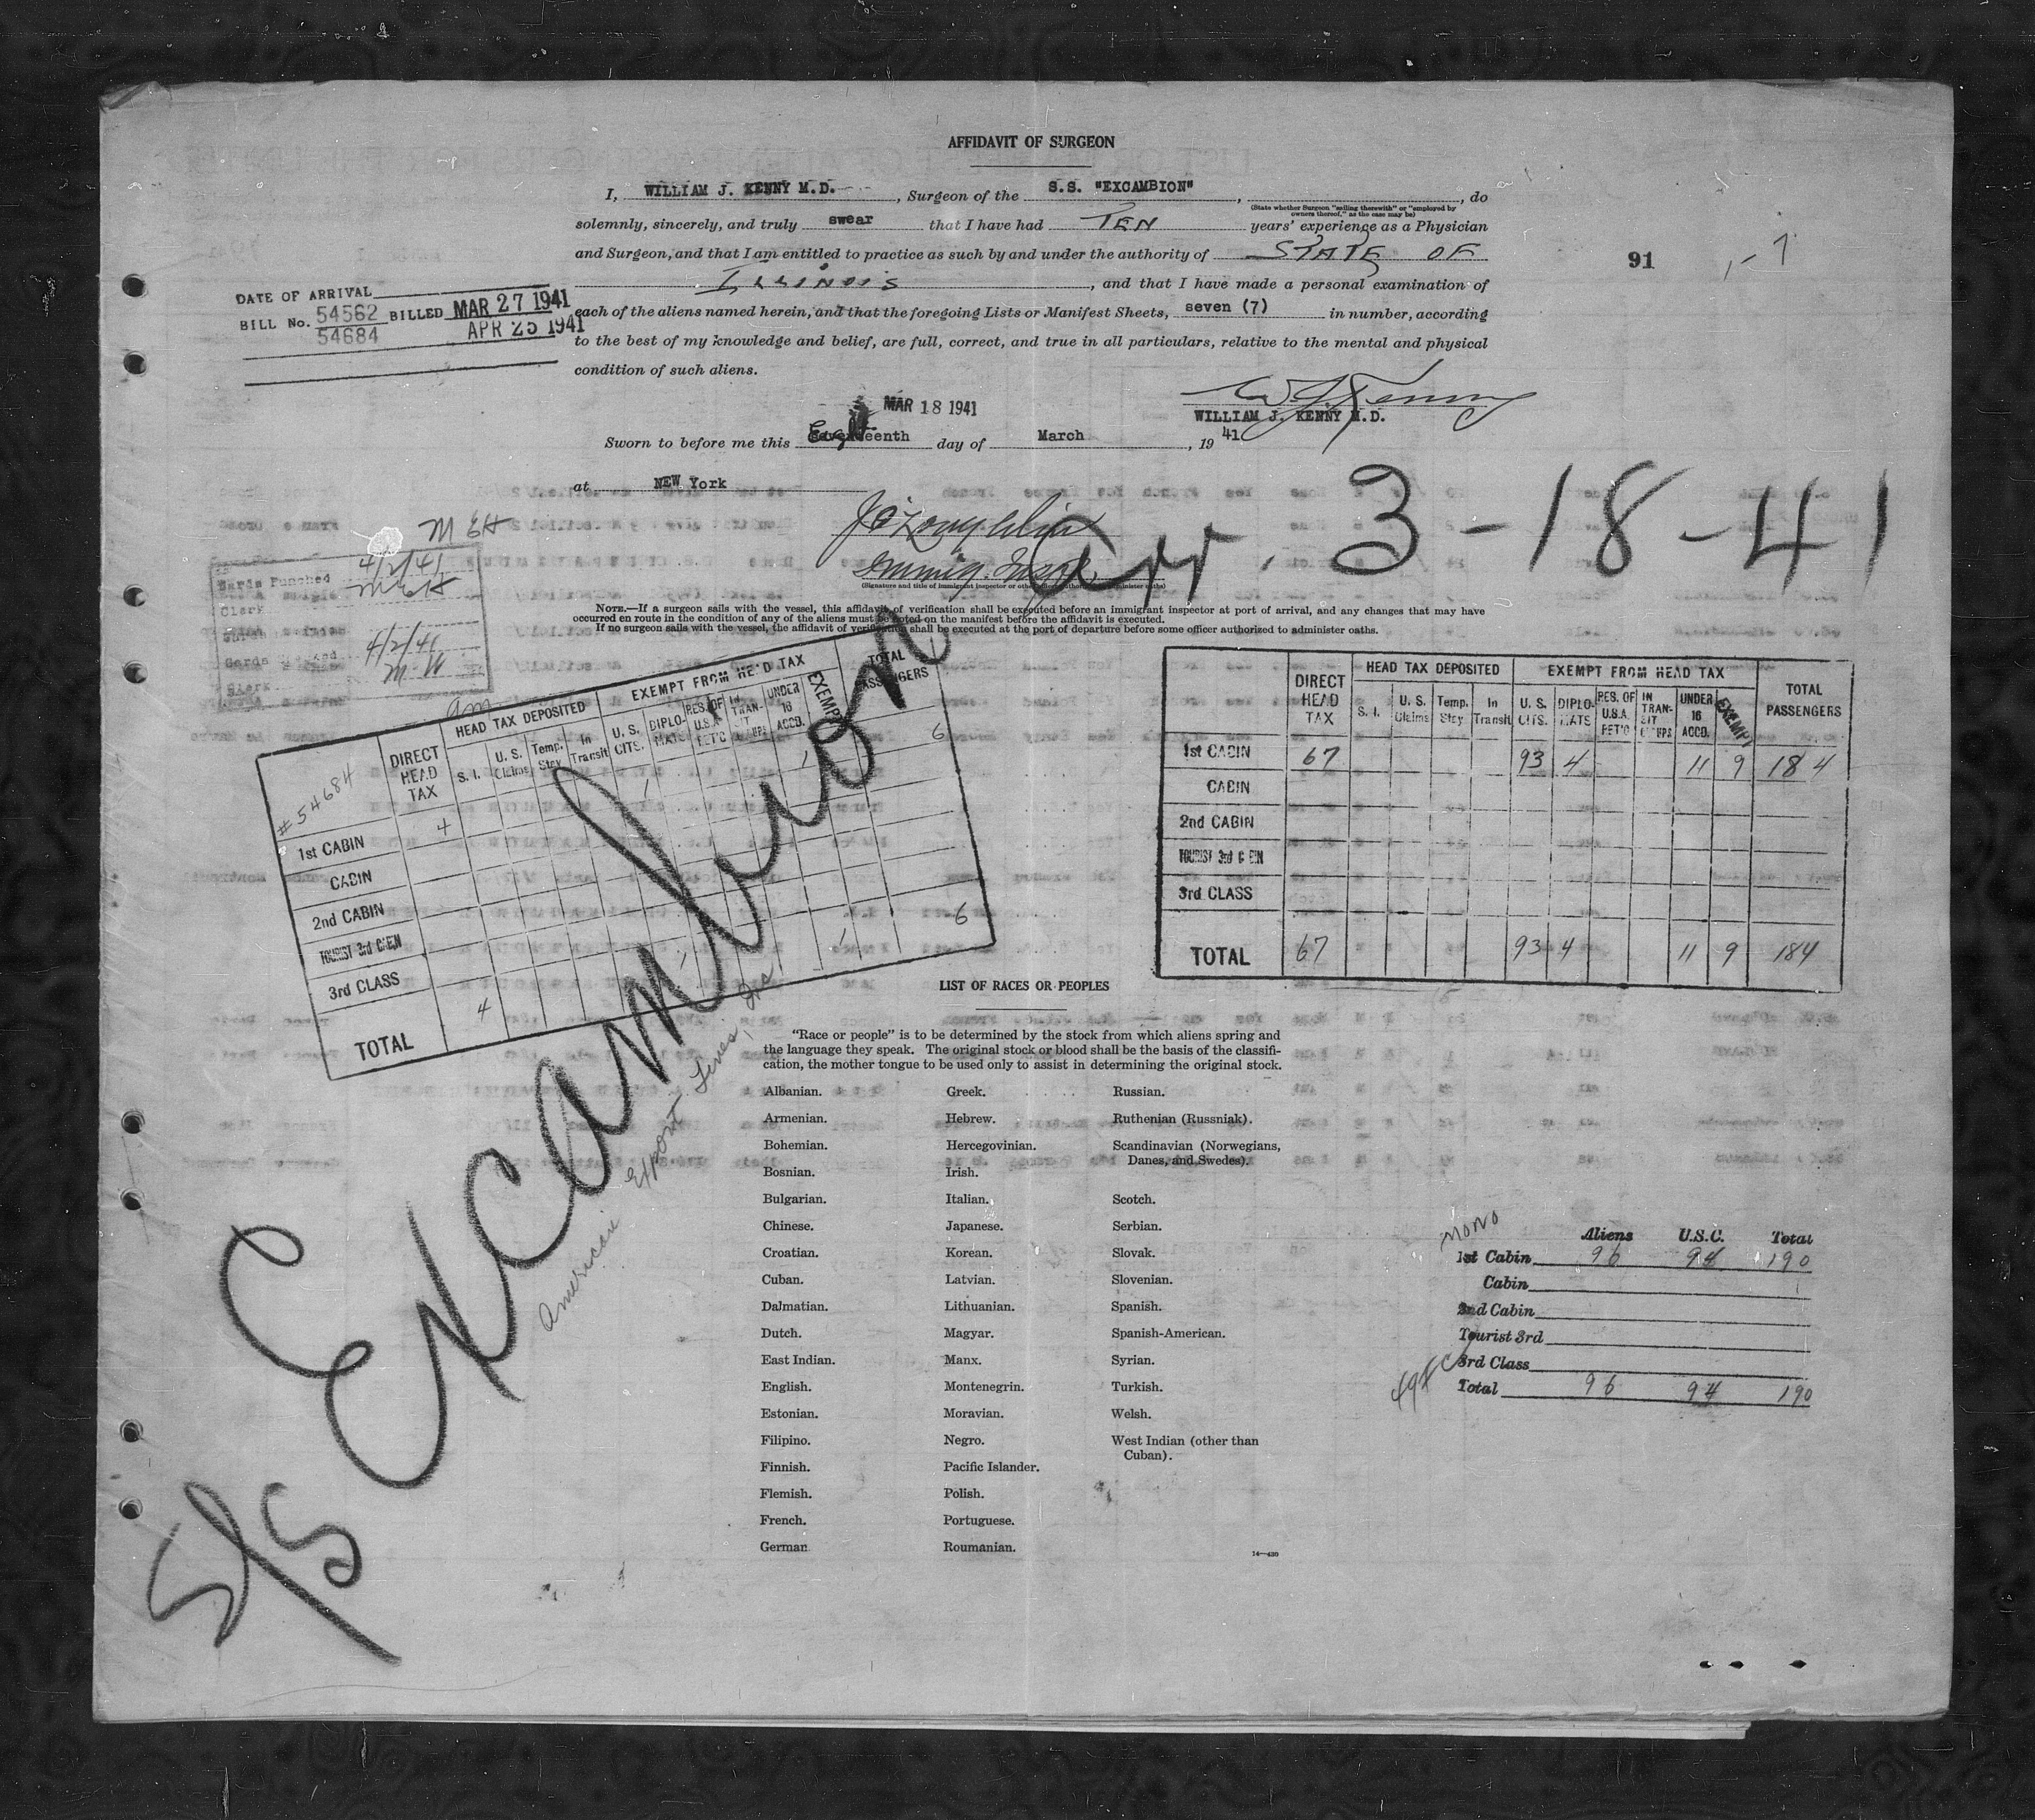 AFFIDAVIT OF SURGEON
I, WILLIAM J. KENNY M.D. , Surgeon of the S.S. "EXCAMBION" , , do
(State whether Surgeon "sailing therewith" or "employed by
owners thereof," as the case may be)
solemnly, sincerely, and truly swear that I have had TEN years' experience as a Physician
and Surgeon, and that I am entitled to practice as such by and under the authority of STATE OF
ILLINOIS , and that I have made a personal examination of
each of the aliens named herein, and that the foregoing Lists or Manifest Sheets, seven (7) in number, according
to the best of my knowledge and belief, are full, correct, and true in all particulars, relative to the mental and physical
condition of such aliens.
91
DATE OF ARRIVAL
BILL No. 54562 BILLED MAR 27 1941
54684 APR 25 1941
MAR 18 1941
W J Kenny
WILLIAM J. KENNY M.D.
Sworn to before me this day of March , 19 41
at NEW York
Immig. Insp.
(Signature and title of immigrant inspector or other officer authorized to administer oaths)
Arr. 3-18-41
MEH
Cards Punched 4/2/41
Clerk MEH
4/2/41
Clerk
NOTE.—If a surgeon sails with the vessel, this affidavit of verification shall be executed before an immigrant inspector at port of arrival, and any changes that may have
occurred en route in the condition of any of the aliens must be noted on the manifest before the affidavit is executed.
If no surgeon sails with the vessel, the affidavit of verification shall be executed at the port of departure before some officer authorized to administer oaths.
#54684
DIRECT HEAD TAX
HEAD TAX DEPOSITED
EXEMPT FROM HEAD TAX
TOTAL PASSENGERS
S. I. U. S. Claims Temp. Stay In Transit U. S. CITS. DIPLOMATS RES. OF U.S.A. RET'G IN TRANSIT UNDER 16 ACCD. EXEMPT
1st CABIN 4 1 1 6
CABIN
2nd CABIN
TOURIST 3rd CABIN
3rd CLASS
TOTAL 4 1 1 6
DIRECT HEAD TAX
HEAD TAX DEPOSITED
EXEMPT FROM HEAD TAX
TOTAL PASSENGERS
S. I. U. S. Claims Temp. Stay In Transit U. S. CITS. DIPLOMATS RES. OF U.S.A. RET'G IN TRANSIT UNDER 16 ACCD. EXEMPT
1st CABIN 67 93 4 11 9 184
CABIN
2nd CABIN
TOURIST 3rd CABIN
3rd CLASS
TOTAL 67 93 4 11 9 184
S/S Excambion
American Export Lines, Inc.
LIST OF RACES OR PEOPLES
"Race or people" is to be determined by the stock from which aliens spring and
the language they speak. The original stock or blood shall be the basis of the classifi-
cation, the mother tongue to be used only to assist in determining the original stock.
Albanian.
Armenian.
Bohemian.
Bosnian.
Bulgarian.
Chinese.
Croatian.
Cuban.
Dalmatian.
Dutch.
East Indian.
English.
Estonian.
Filipino.
Finnish.
Flemish.
French.
German
Greek.
Hebrew.
Hercegovinian.
Irish.
Italian.
Japanese.
Korean.
Latvian.
Lithuanian.
Magyar.
Manx.
Montenegrin.
Moravian.
Negro.
Pacific Islander.
Polish.
Portuguese.
Roumanian.
Russian.
Ruthenian (Russniak).
Scandinavian (Norwegians,
Danes, and Swedes).
Scotch.
Serbian.
Slovak.
Slovenian.
Spanish.
Spanish-American.
Syrian.
Turkish.
Welsh.
West Indian (other than
Cuban).
14—430
MONO
Aliens U.S.C. Total
1st Cabin 96 94 190
Cabin
2nd Cabin
Tourist 3rd
3rd Class
Total 96 94 190